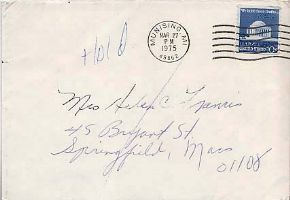 Hold
MUNISING, MI
MAR 27
PM
1975
49862
10c
Mrs Helen C Francis
45 Bryant St.
Springfield, Mass
01108